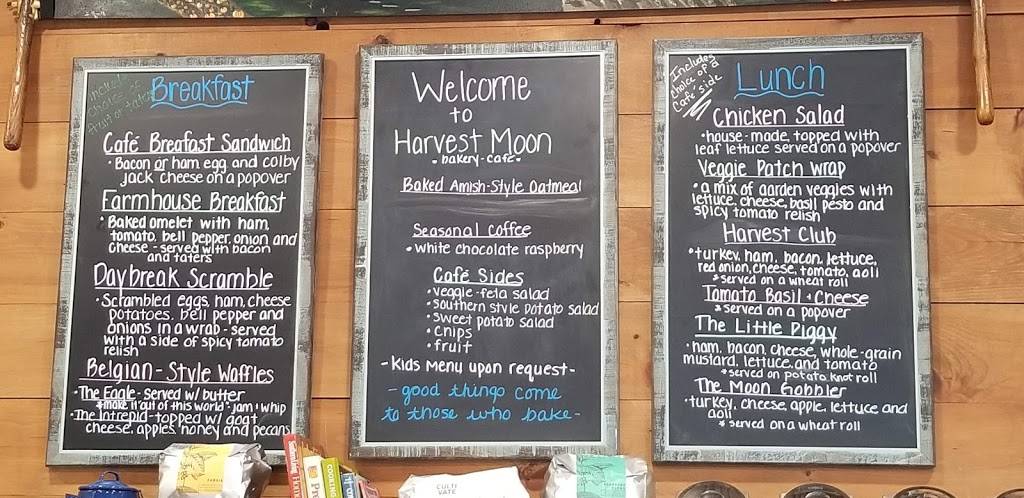 Includes
choice of
fruit or potato
Breakfast
Café Breafast Sandwich
• Bacon or ham egg and colby
jack cheese on a popover
Farmhouse Breakfast
• Baked omelet with ham
tomato, bell pepper, onion and
cheese - served with bacon
and taters
Daybreak Scramble
• Scrambled eggs, ham, cheese
potatoes, bell pepper and
onions in a wrap - served
with a side of spicy tomato
relish
Belgian-Style Waffles
• The Eagle - served w/ butter
*make it "out of this world" - jam + whip
• The Intrepid - topped w/ goat
cheese, apples, honey and pecans
Welcome
to
Harvest Moon
• bakery - café •
Baked Amish-Style Oatmeal
Seasonal Coffee
• white chocolate raspberry
Café Sides
• veggie-feta salad
• southern style potato salad
• sweet potato salad
• chips
• fruit
- Kids Menu upon request -
- good things come
to those who bake -
Includes
choice of a
Café side
Lunch
Chicken Salad
• house-made, topped with
leaf lettuce served on a popover
Veggie Patch Wrap
• a mix of garden veggies with
lettuce, cheese, basil pesto and
spicy tomato relish
Harvest Club
• turkey, ham, bacon, lettuce,
red onion, cheese, tomato, aoli
* served on a wheat roll
Tomato Basil + Cheese
* served on a popover
The Little Piggy
• ham, bacon, cheese, whole-grain
mustard, lettuce, and tomato
* served on potato knot roll
The Moon Gobbler
• turkey, cheese, apple, lettuce and
aoli
* served on a wheat roll
CULTI
VATE